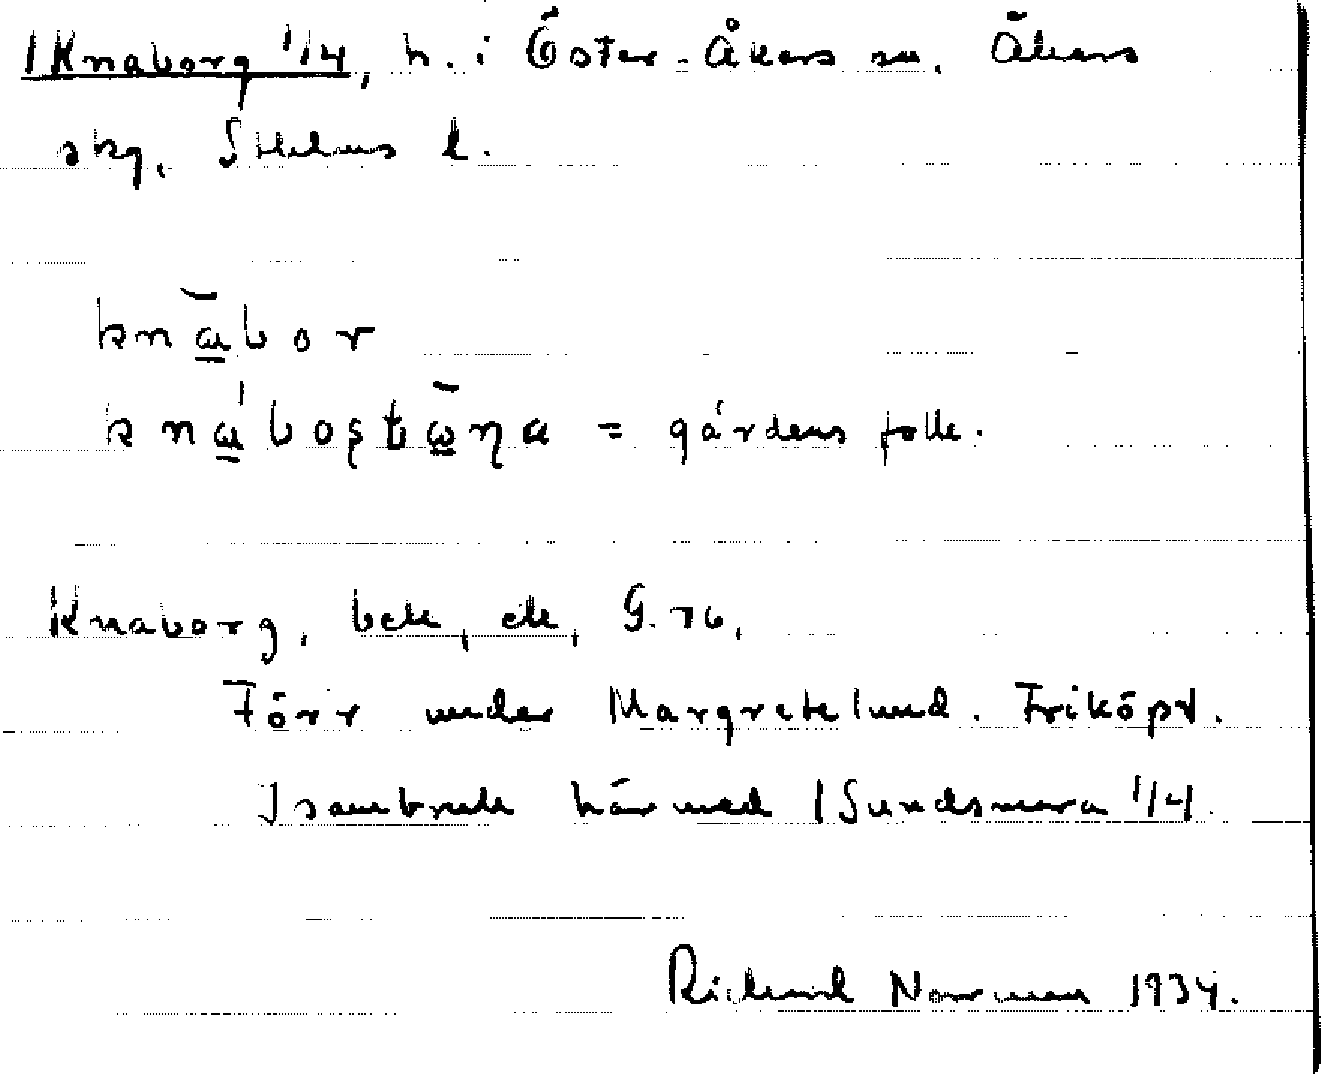 1 Knaborg 1/4, h. i Öster-Åkers sn. Åkers
skg, Sthlms l.
knābor
knáboʂtāņa = gårdens folk.
Knaborg, bek, ek, G. 76,
Förr under Margretelund. Friköpt.
I sambruk här med 1 Sundsmara 1/4.
Rickard Norman 1934.